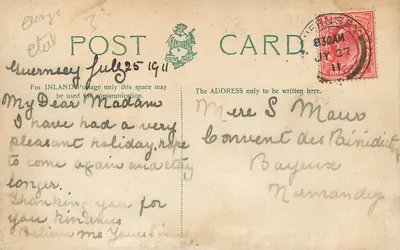 3
POST CARD.
Guernsey July 25 1911
For INLAND Postage only this space may
be used for communication.
The ADDRESS only to be written here.
GUERNSEY
830AM
JY 27
11
My Dear Madam
I have had a very
pleasant holiday, hope
to come again and stay
longer.
Thanking you for
you kindness
Believe me Yours
Mere S
Couvent des
Bayeux
Normandy